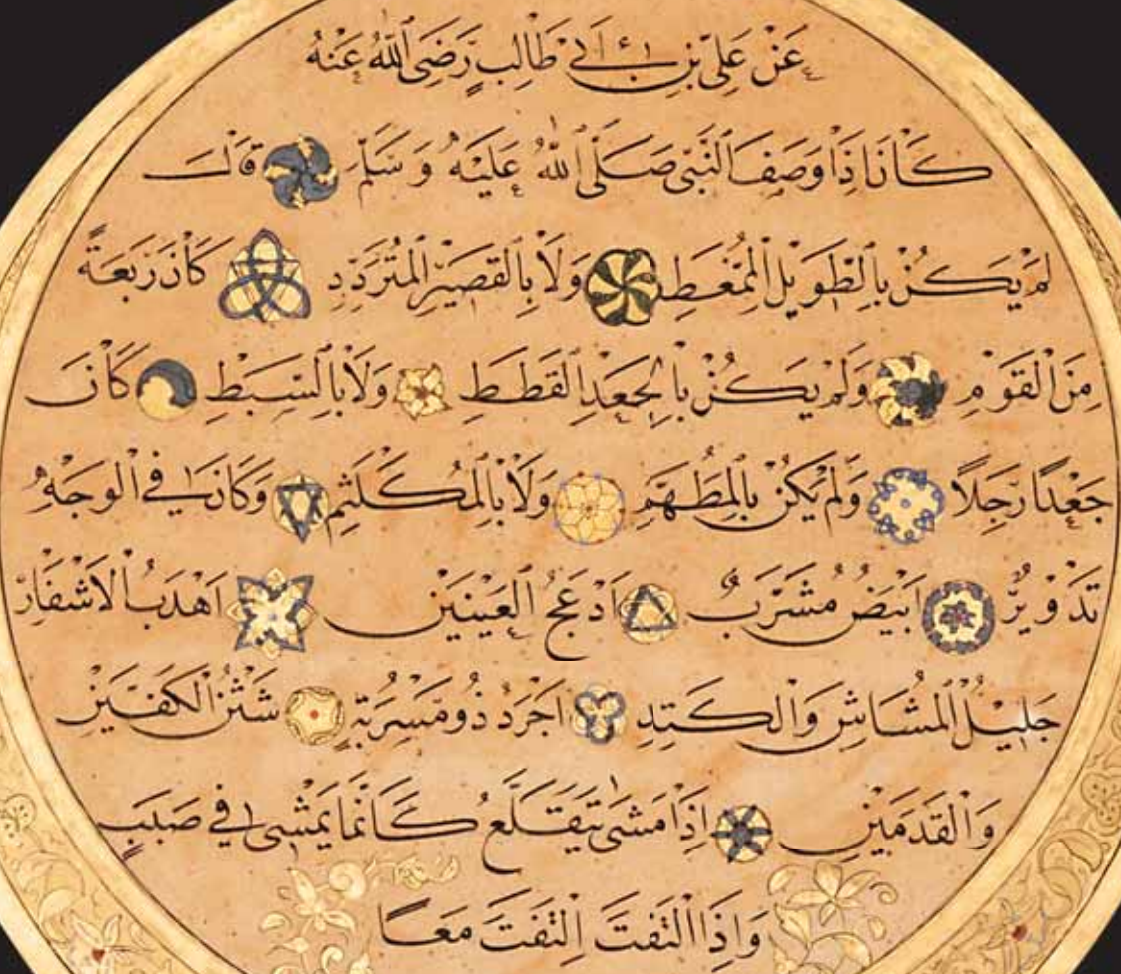 عَنْ عَلِيِّ بْنِ أَبِي طَالِبٍ رَضِيَ اللّٰهُ عَنْهُ
كَانَ اِذَا وَصَفَ النَّبِيَّ صَلَّى اللّٰهُ عَلَيْهِ وَسَلَّمَ قَالَ
لَمْ يَكُنْ بِالطَّوِيلِ الْمُمَّغِطِ وَلَا بِالْقَصِيرِ الْمُتَرَدِّدِ كَانَ رَبْعَةً
مِنَ الْقَوْمِ وَلَمْ يَكُنْ بِالْجَعْدِ الْقَطَطِ وَلَا بِالسَّبْطِ كَانَ
جَعْدًا رَجِلًا وَلَمْ يَكُنْ بِالْمُطَهَّمِ وَلَا بِالْمُكَلْثَمِ وَكَانَ فِي الْوَجْهِ
تَدْوِيرٌ اَبْيَضُ مُشْرَبٌ اَدْعَجُ الْعَيْنَيْنِ اَهْدَبُ الْاَشْفَارِ
جَلِيلُ الْمُشَاشِ وَالْكَتَدِ اَجْرَدُ ذُو مَسْرُبَةٍ شَثْنُ الْكَفَّيْنِ
وَالْقَدَمَيْنِ اِذَا مَشَى تَقَلَّعَ كَاَنَّمَا يَمْشِي فِي صَبَبٍ
وَاِذَا الْتَفَتَ اِلْتَفَتَ مَعًا